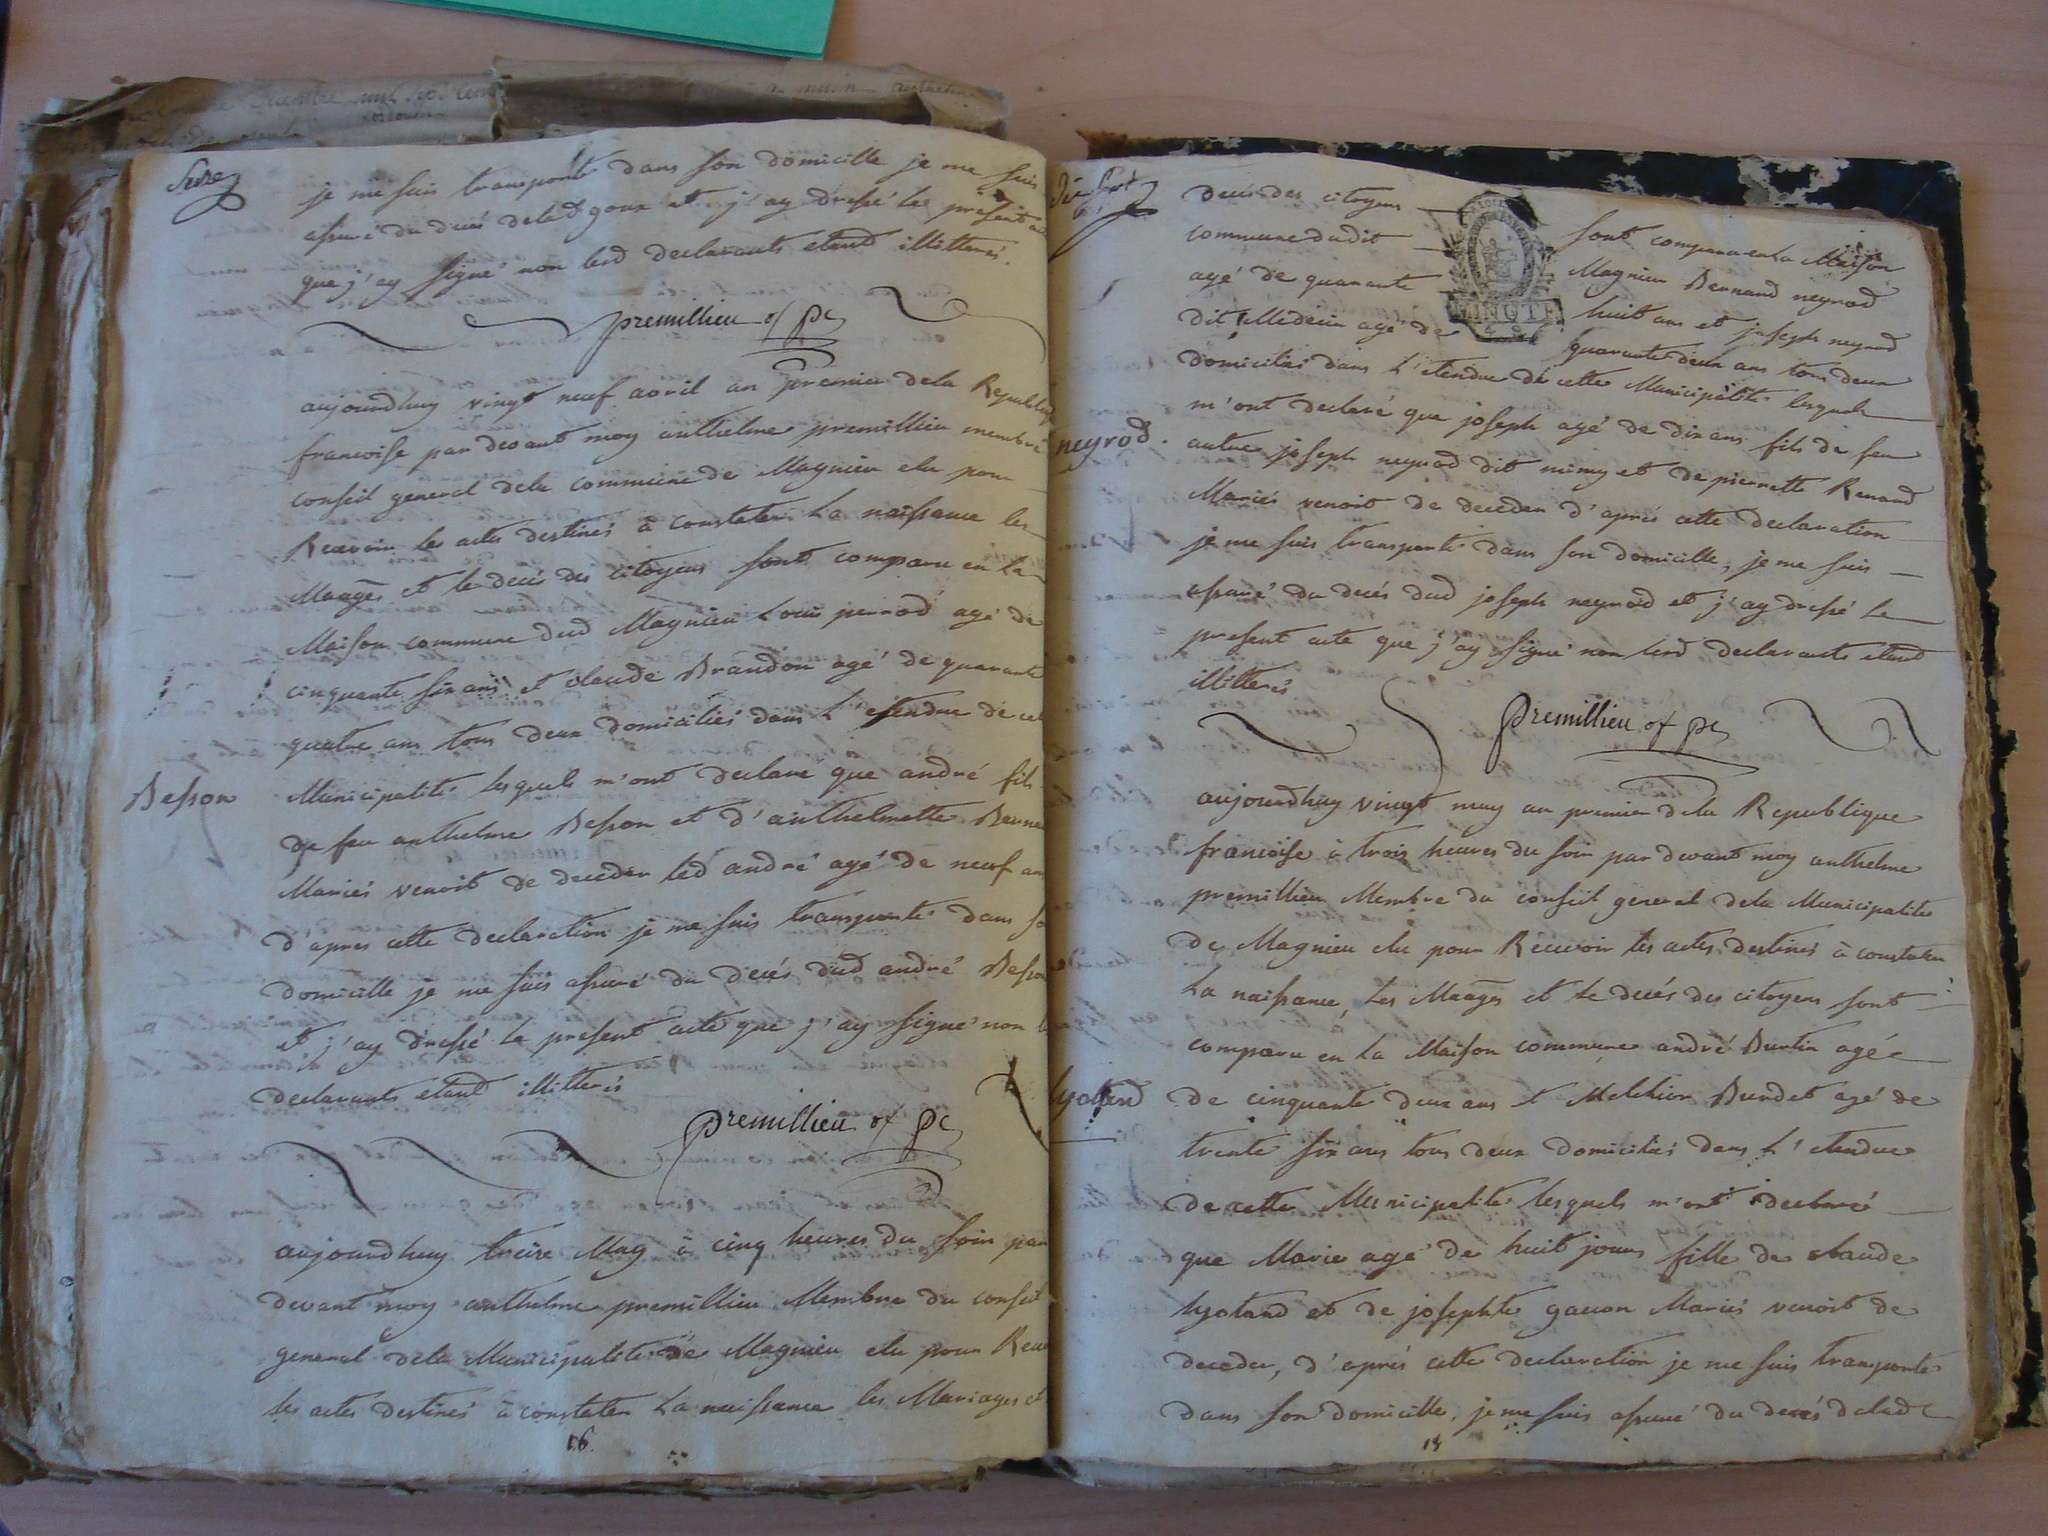 Seize
je me suis transporté dans son domicille je me suis
assuré du decés delad goux et j'ay dressé le present
que j'ay signé non lesd declarants etand illitterés.
premillieu of pc
aujourdhuy vingt neuf avril an premier dela Republiq
francoise par devant moy anthelme premillieu membre
conseil general dela commune de Magnieu elu pour
Recevoir les actes destinés à constater La naissance les
Maages et le decés des citoyens sont comparu en La
Maison commune dud Magnieu Louis perrod agé de
cinquante six ans et claude Brandon agé de quarante
quatre ans tous deux domiciliés dans L'etendue de cet
Besson
Municipalité lesquels m'ont declaré que andré fils
de feu anthelme Besson et d'anthelmette
Mariés venoit de deceder led andré agé de neuf an
d'apres cette declaration je me suis transporté dans so
domicille je me suis assuré du decés dud andré Besson
et j'ay dressé le present acte que j'ay signé non
declarants etand illitterés
premillieu of pc
aujourdhuy treize May à cinq heures du soir par
devant moy anthelme premillieu Membre du conseil
general dela Municipalité de Magnieu elu pour
les actes destinés à constater La naissance les Mariages et
16.
decés des citoyens sont comparu en La Maison
commune dudit Magnieu Bernard neyrod
agé de quarante huit ans et joseph neyrod
dit Medecin agé de quarante deux ans tous deux
VINGTE
domiciliés dans L'etendue de cette Municipalité lesquels
m'ont declaré que joseph agé de dix ans fils de feu
neyrod.
autre joseph neyrod dit mimy et de pierrette Renard
Mariés venoit de deceder d'aprés cette declaration
je me suis transporté dans son domicille, je me suis
assuré du decés dud joseph neyrod et j'ay dressé Le
present acte que j'ay signé non lesd declarants etand
illitterés
premillieu of pc
aujourdhuy vingt may an premier dela Republique
francoise à trois heures du soir par devant moy anthelme
premillieu Membre du conseil general dela Municipalité
de Magnieu elu pour Recevoir les actes destinés à constater
La naissance, Les Maages et Le decés des citoyens sont
comparu en La Maison commune andré Burtin agé
hyotard
de cinquante deux ans et Melchior Burdet agé de
trente six ans tous deux domiciliés dans L'etendue
de cette Municipalité lesquels m'ont declaré
que Marie agé de huit jours fille de claude
hyotard et de josephte Mariés venoit de
deceder, d'aprés cette declaration je me suis transporté
dans son domicille, je me suis assuré du decés delad